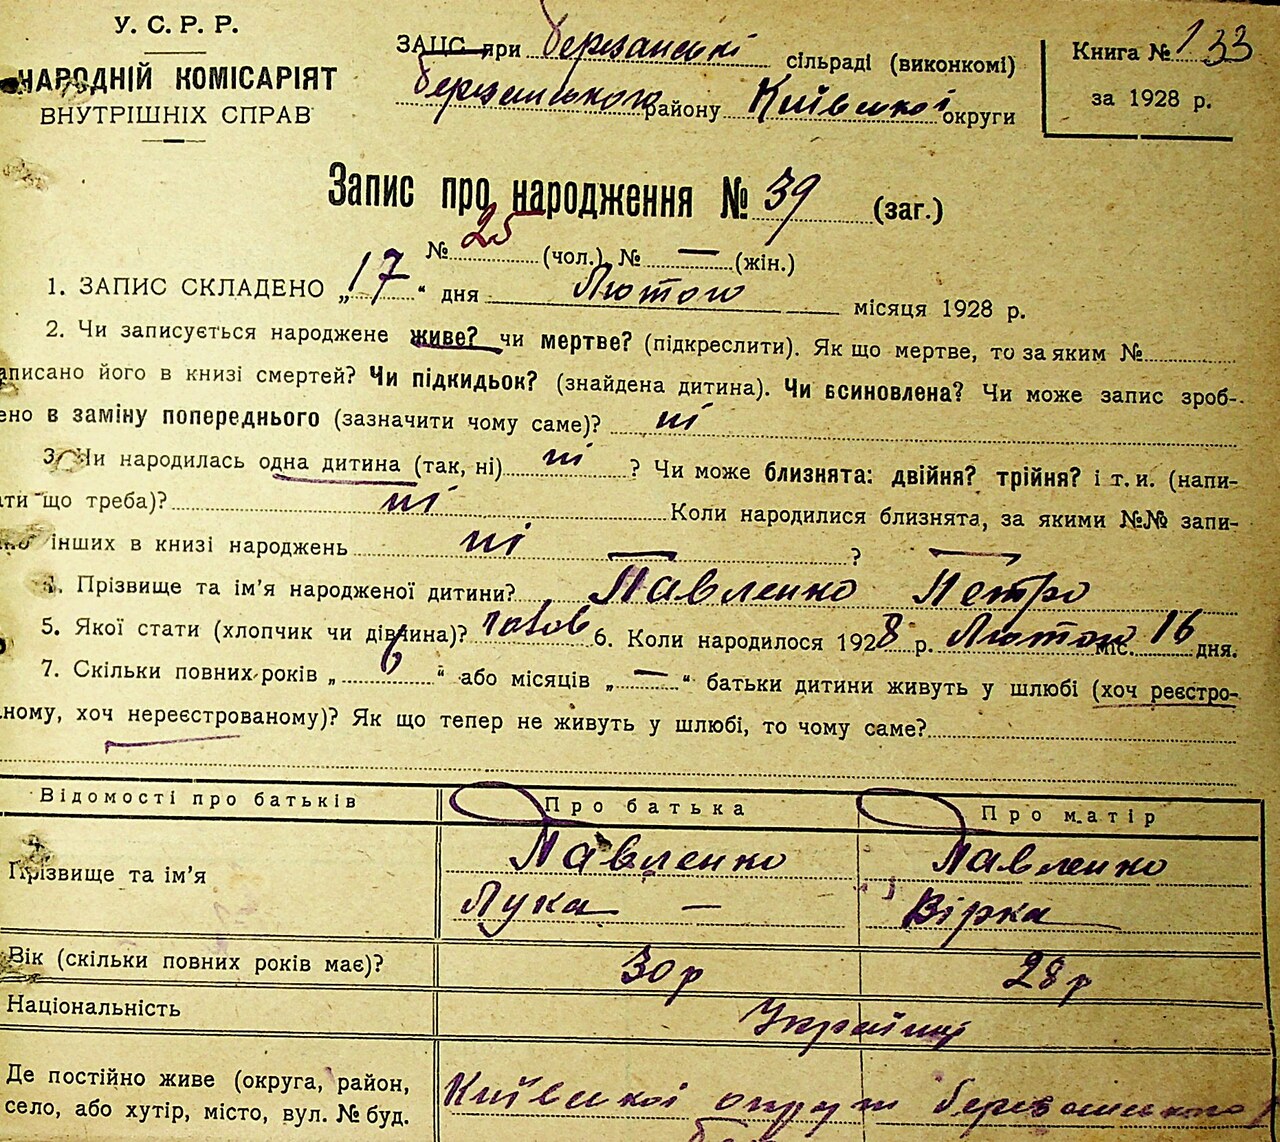 У. С. Р. Р.
НАРОДНІЙ КОМІСАРІЯТ
ВНУТРІШНІХ СПРАВ
ЗАЦС при Березанські сільраді (виконкомі)
Березанського району Київської округи
Книга № 1 33
за 1928 р.
Запис про народження № 39 (заг.)
№ 25 (чол.) № — (жін.)
1. ЗАПИС СКЛАДЕНО „17“ дня Лютого місяця 1928 р.
2. Чи записується народжене живе? чи мертве? (підкреслити). Як що мертве, то за яким №
аписано його в книзі смертей? Чи підкидьок? (знайдена дитина). Чи всиновлена? Чи може запис зроб-
ено в заміну попереднього (зазначити чому саме)? ні
3. Чи народилась одна дитина (так, ні) ні ? Чи може близнята: двійня? трійня? і т. и. (напи-
ати що треба)? ні Коли народилися близнята, за якими №№ запи-
но інших в книзі народжень ні ?
4. Прізвище та ім'я народженої дитини? Павленко Петро
5. Якої стати (хлопчик чи дівчина)? 6. Коли народилося 1928 р. Лютого міс. 16 дня.
7. Скільки повних років „6“ або місяців „—“ батьки дитини живуть у шлюбі (хоч реєстро-
ному, хоч нереєстрованому)? Як що тепер не живуть у шлюбі, то чому саме?
Відомості про батьків Про батька Про матір
Прізвище та ім'я Павленко Павленко
Лука — Вірка
Вік (скільки повних років має)? 30 р 28 р
Національність Українці
Де постійно живе (округа, район, Київської округи Березанського
село, або хутір, місто, вул. № буд.